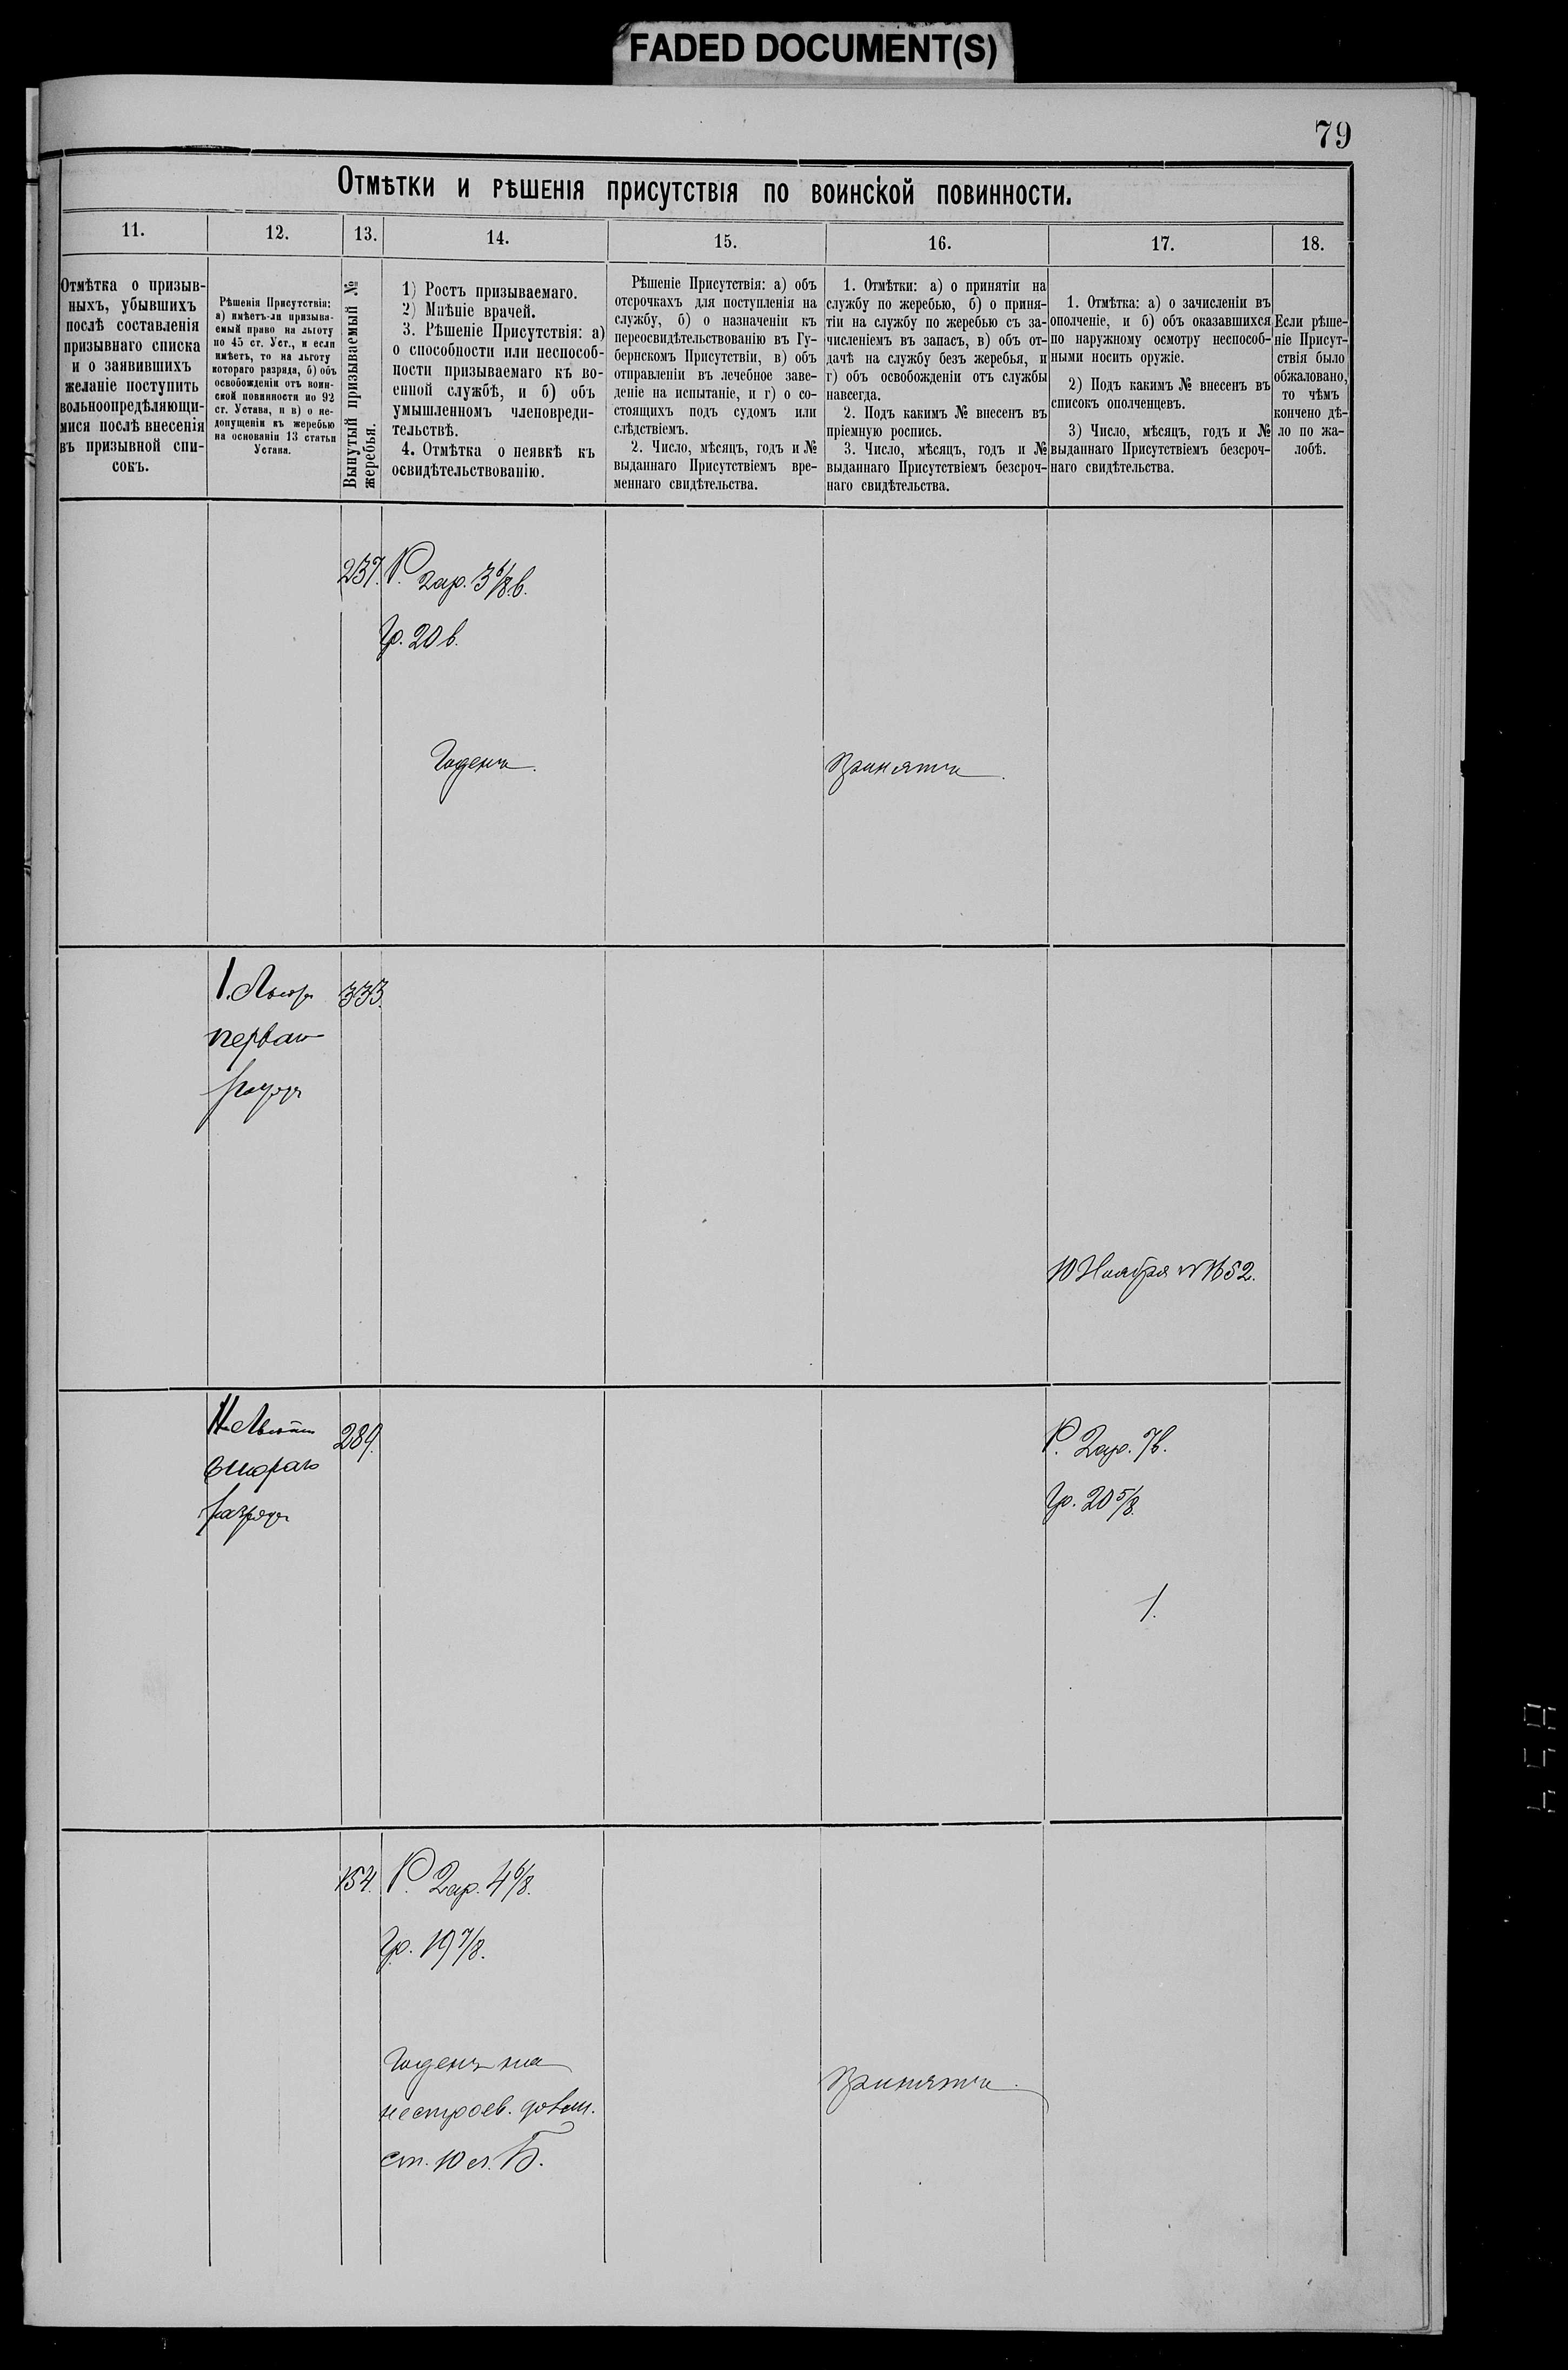 FADED DOCUMENT(S)
79
Отмѣтки и рѣшенія присутствія по воинской повинности.
11.
12.
13.
14.
15.
16.
17.
18.
Отмѣтка о призыв-
ныхъ, убывшихъ
послѣ составленія
призывнаго списка
и о заявившихъ
желаніе поступить
вольноопредѣляющи-
мися послѣ внесенія
въ призывной спи-
сокъ.
Рѣшенія Присутствія:
а) имѣетъ-ли призыва-
емый право на льготу
по 45 ст. Уст., и если
имѣетъ, то на льготу
котораго разряда, б) объ
освобожденіи отъ воин-
ской повинности по 92
ст. Устава, и в) о не-
допущеніи къ жеребью
на основаніи 13 статьи
Устава.
Вынутый призываемый №
жеребья.
1) Ростъ призываемаго.
2) Мнѣніе врачей.
3. Рѣшеніе Присутствія: а)
о способности или неспособ-
ности призываемаго къ во-
енной службѣ, и б) объ
умышленномъ членовреди-
тельствѣ.
4. Отмѣтка о неявкѣ къ
освидѣтельствованію.
Рѣшеніе Присутствія: а) объ
отсрочкахъ для поступленія на
службу, б) о назначеніи къ
переосвидѣтельствованію въ Гу-
бернскомъ Присутствіи, в) объ
отправленіи въ лечебное заве-
деніе на испытаніе, и г) о со-
стоящихъ подъ судомъ или
слѣдствіемъ.
2. Число, мѣсяцъ, годъ и №
выданнаго Присутствіемъ вре-
меннаго свидѣтельства.
1. Отмѣтки: а) о принятіи на
службу по жеребью, б) о приня-
тіи на службу по жеребью съ за-
численіемъ въ запасъ, в) объ от-
дачѣ на службу безъ жеребья, и
г) объ освобожденіи отъ службы
навсегда.
2. Подъ какимъ № внесенъ въ
пріемную роспись.
3. Число, мѣсяцъ, годъ и №
выданнаго Присутствіемъ безсроч-
наго свидѣтельства.
1. Отмѣтка: а) о зачисленіи въ
ополченіе, и б) объ оказавшихся
по наружному осмотру неспособ-
ными носить оружіе.
2) Подъ какимъ № внесенъ въ
списокъ ополченцевъ.
3) Число, мѣсяцъ, годъ и №
выданнаго Присутствіемъ безсроч-
наго свидѣтельства.
Если рѣше-
ніе Присут-
ствія было
обжаловано,
то чѣмъ
кончено дѣ-
ло по жа-
лобѣ.
237. Р. 2 ар. 3 6/8 в.
Гр. 20 в.
Годенъ.
Принятъ.
333.
10 Ноября № 1652.
289.
разряда
Р. 2 ар. 7 в.
Гр. 20 5/8.
1.
154. Р. 2 ар. 4 6/8.
Гр. 19 7/8.
Годенъ на
нестроев. долж.
ст. 10 л. Б.
Принятъ.